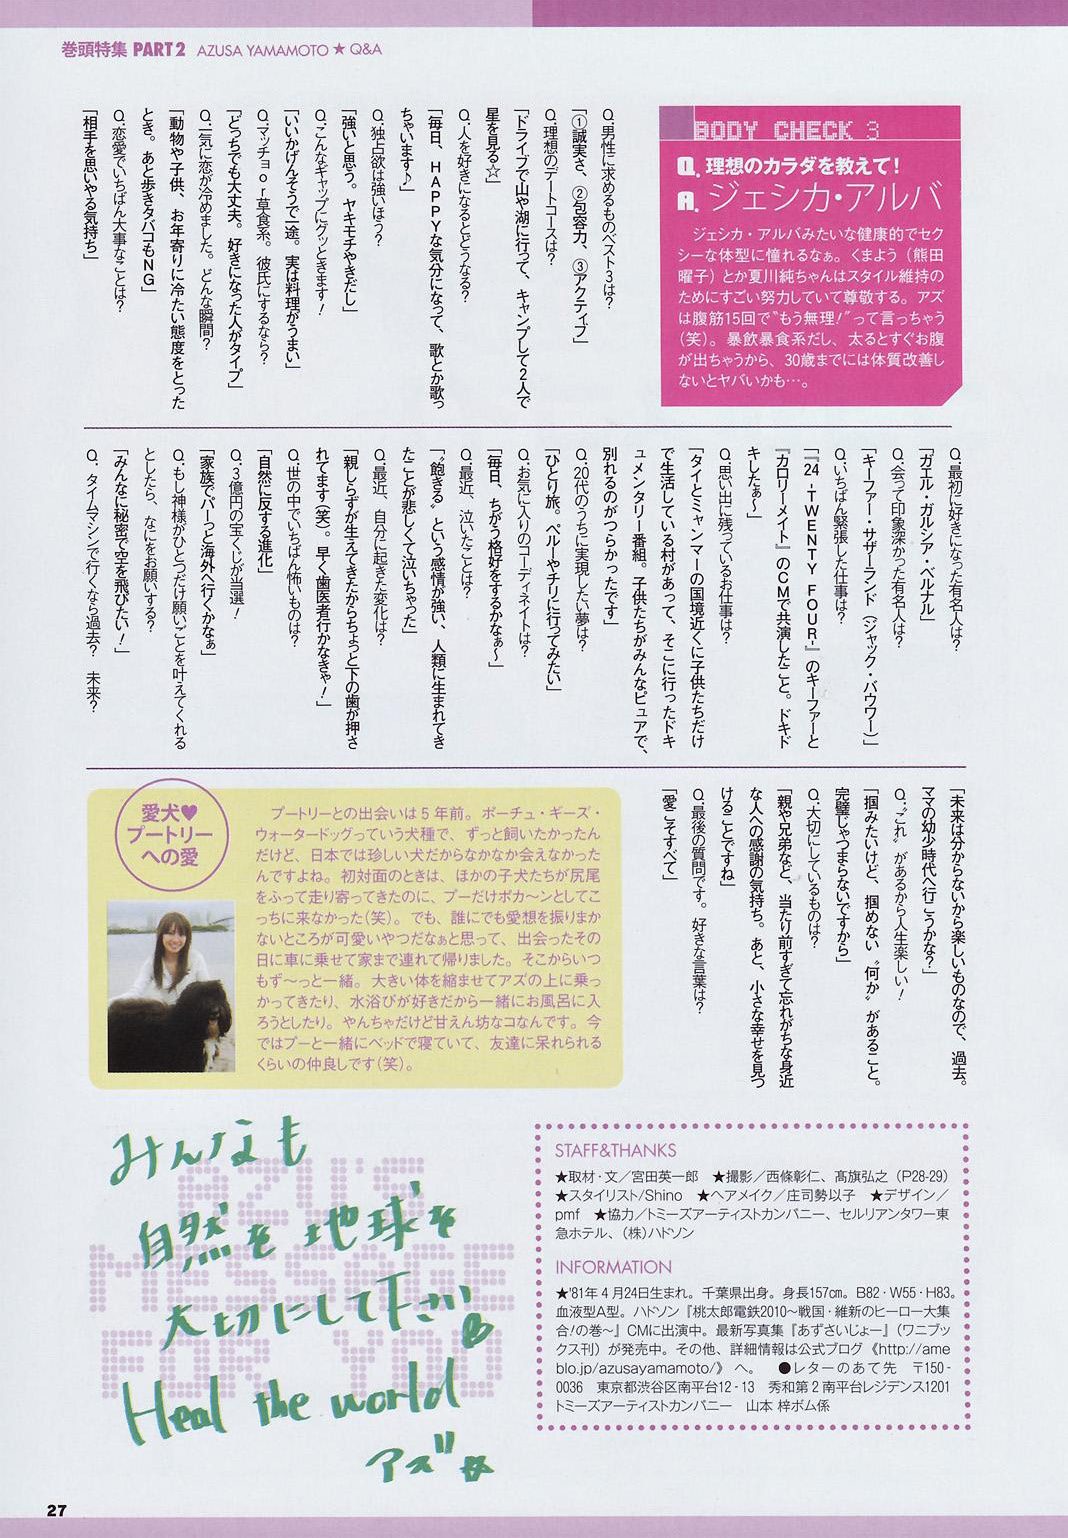 巻頭特集 PART 2 AZUSA YAMAMOTO ★ Q&A
BODY CHECK 3
Q. 理想のカラダを教えて!
A. ジェシカ・アルバ
ジェシカ・アルバみたいな健康的でセク
シーな体型に憧れるなぁ。くまよう（熊田
曜子）とか夏川純ちゃんはスタイル維持の
ためにすごい努力していて尊敬する。アズ
は腹筋15回で〝もう無理！〟って言っちゃう
（笑）。暴飲暴食系だし、太るとすぐお腹
が出ちゃうから、30歳までには体質改善し
ないとヤバいかも…。
Q. 男性に求めるものベスト3は？
「①誠実さ、②包容力、③アクティブ」
Q. 理想のデートコースは？
「ドライブで山や湖に行って、キャンプして2人で
星を見る☆」
Q. 人を好きになるとどうなる？
「毎日、HAPPYな気分になって、歌とか歌っ
ちゃいます♪」
Q. 独占欲は強いほう？
「強いと思う。ヤキモチやきだし」
Q. こんなギャップにグッときます！
「いいかげんそうで一途。実は料理がうまい」
Q. マッチョor草食系。彼氏にするなら？
「どっちでも大丈夫。好きになった人がタイプ」
Q. 一気に恋が冷めました。どんな瞬間？
「動物や子供、お年寄りに冷たい態度をとった
とき。あと歩きタバコもNG」
Q. 恋愛でいちばん大事なことは？
「相手を思いやる気持ち」
Q. 最初に好きになった有名人は？
「ガエル・ガルシア・ベルナル」
Q. 会って印象深かった有名人は？
「キーファー・サザーランド（ジャック・バウワー）」
Q. いちばん緊張した仕事は？
「『24 -TWENTY FOUR-』のキーファーと
『カロリーメイト』のCMで共演したこと。ドキド
キしたぁ〜」
Q. 思い出に残っているお仕事は？
「タイとミャンマーの国境近くに子供たちだけ
で生活している村があって、そこに行ったドキ
ュメンタリー番組。子供たちがみんなピュアで、
別れるのがつらかったです」
Q. 20代のうちに実現したい夢は？
「ひとり旅。ペルーやチリに行ってみたい」
Q. お気に入りのコーディネイトは？
「毎日、ちがう格好をするかなぁ〜」
Q. 最近、泣いたことは？
「〝飽きる〟という感情が強い、人類に生まれてき
たことが悲しくて泣いちゃった」
Q. 最近、自分に起きた変化は？
「親しらずが生えてきたからちょっと下の歯が押さ
れてます（笑）。早く歯医者行かなきゃ！」
Q. 世の中でいちばん怖いものは？
「自然に反する進化」
Q. 3億円の宝くじが当選！
「家族でパーっと海外へ行くかなぁ」
Q. もし神様がひとつだけ願いごとを叶えてくれる
としたら、なにをお願いする？
「みんなに秘密で空を飛びたい！」
Q. タイムマシンで行くなら過去？ 未来？
「未来は分からないから楽しいものなので、過去。
ママの幼少時代へ行こうかな？」
Q. 〝これ〟があるから人生楽しい！
「掴みたいけど、掴めない〝何か〟があること。
完璧じゃつまらないですから」
Q. 大切にしているものは？
「親や兄弟など、当たり前すぎて忘れがちな身近
な人への感謝の気持ち。あと、小さな幸せを見つ
けることですね」
Q. 最後の質問です。好きな言葉は？
「愛こそすべて」
愛犬♥
プートリー
への愛
プートリーとの出会いは5年前。ポーチュ・ギーズ・
ウォータードッグっていう犬種で、ずっと飼いたかったん
だけど、日本では珍しい犬だからなかなか会えなかった
んですよね。初対面のときは、ほかの子犬たちが尻尾
をふって走り寄ってきたのに、プーだけポカ〜ンとしてこ
っちに来なかった（笑）。でも、誰にでも愛想を振りまか
ないところが可愛いやつだなぁと思って、出会ったその
日に車に乗せて家まで連れて帰りました。そこからいつ
もず〜っと一緒。大きい体を縮ませてアズの上に乗っ
かってきたり、水浴びが好きだから一緒にお風呂に入
ろうとしたり。やんちゃだけど甘えん坊なコなんです。今
ではプーと一緒にベッドで寝ていて、友達に呆れられる
くらいの仲良しです（笑）。
AZU'S
MESSAGE
FOR YOU
みんなも
自然を地球を
大切にして下さい
Heal the world
アズ
STAFF&THANKS
★取材・文／宮田英一郎 ★撮影／西條彰仁、髙旗弘之（P28-29）
★スタイリスト/Shino ★ヘアメイク／庄司勢以子 ★デザイン／
pmf ★協力／トミーズアーティストカンパニー、セルリアンタワー東
急ホテル、（株）ハドソン
INFORMATION
★'81年4月24日生まれ。千葉県出身。身長157cm。B82・W55・H83。
血液型A型。ハドソン『桃太郎電鉄2010〜戦国・維新のヒーロー大集
合!の巻〜』CMに出演中。最新写真集『あずさいじょー』（ワニブ
ックス刊）が発売中。その他、詳細情報は公式ブログ《http://ame
blo.jp/azusayamamoto/》へ。 ●レターのあて先 〒150-
0036 東京都渋谷区南平台12-13 秀和第2南平台レジデンス1201
トミーズアーティストカンパニー 山本 梓ボム係
27